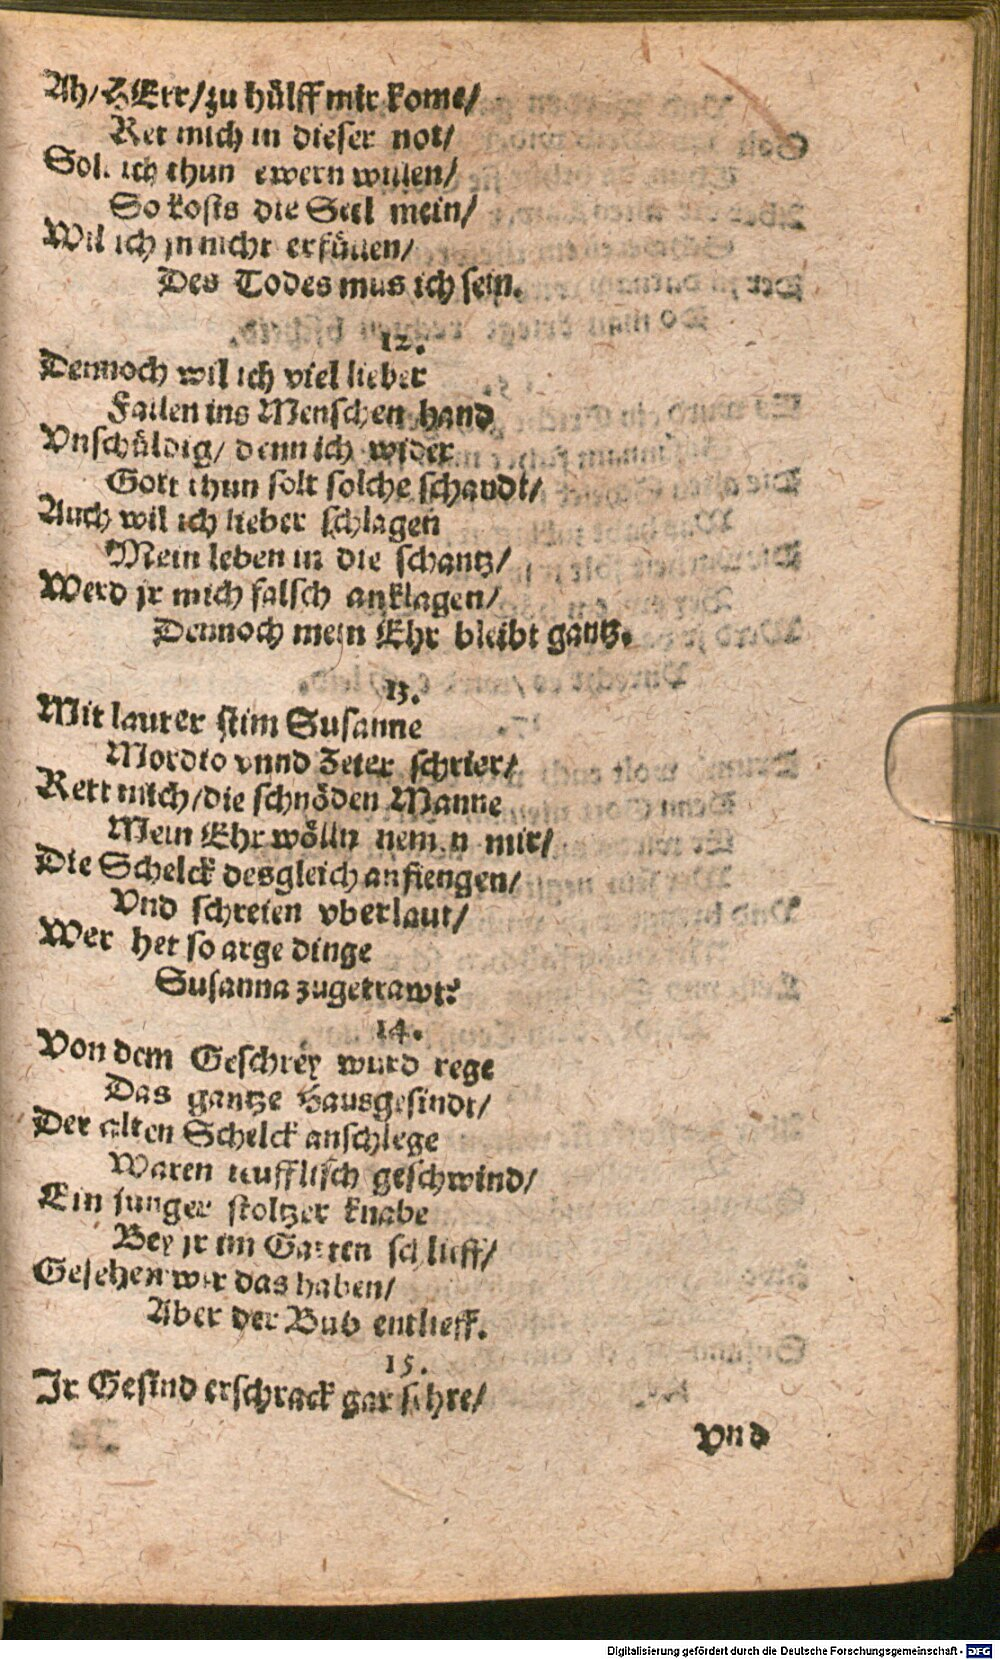 Ah/HErr/zu hülff mir kome/
Ret mich in dieser not/
Sol ich thun ewern willen/
So kosts die Seel mein/
Wil ich jn nicht erfüllen/
Des Todes mus ich sein.
12.
Dennoch wil ich viel lieber
Fallen ins Menschen hand
Vnschüldig/ denn ich wider
Gott thun solt solche schandt/
Auch wil ich lieber schlagen
Mein leben in die schantz/
Werd jr mich falsch anklagen/
Dennoch mein Ehr bleibt gantz.
13.
Mit lauter stim Susanne
Mordio vnnd Zeter schrier/
Rett mich/die schnöden Manne
Mein Ehr wölln nemen mir/
Die Schelck desgleich anfiengen/
Vnd schreien vberlaut/
Wer het so arge dinge
Susanna zugetrawt?
14.
Von dem Geschrey wurd rege
Das gantze Hausgesindt/
Der alten Schelck anschlege
Waren teufflisch geschwind/
Ein junger stoltzer knabe
Bey jr im Garten schlieff/
Gesehen wir das haben/
Aber der Bub entlieff.
15.
Jr Gesind erschrack gar sehre/
Vnd
Digitalisierung gefördert durch die Deutsche Forschungsgemeinschaft - DFG